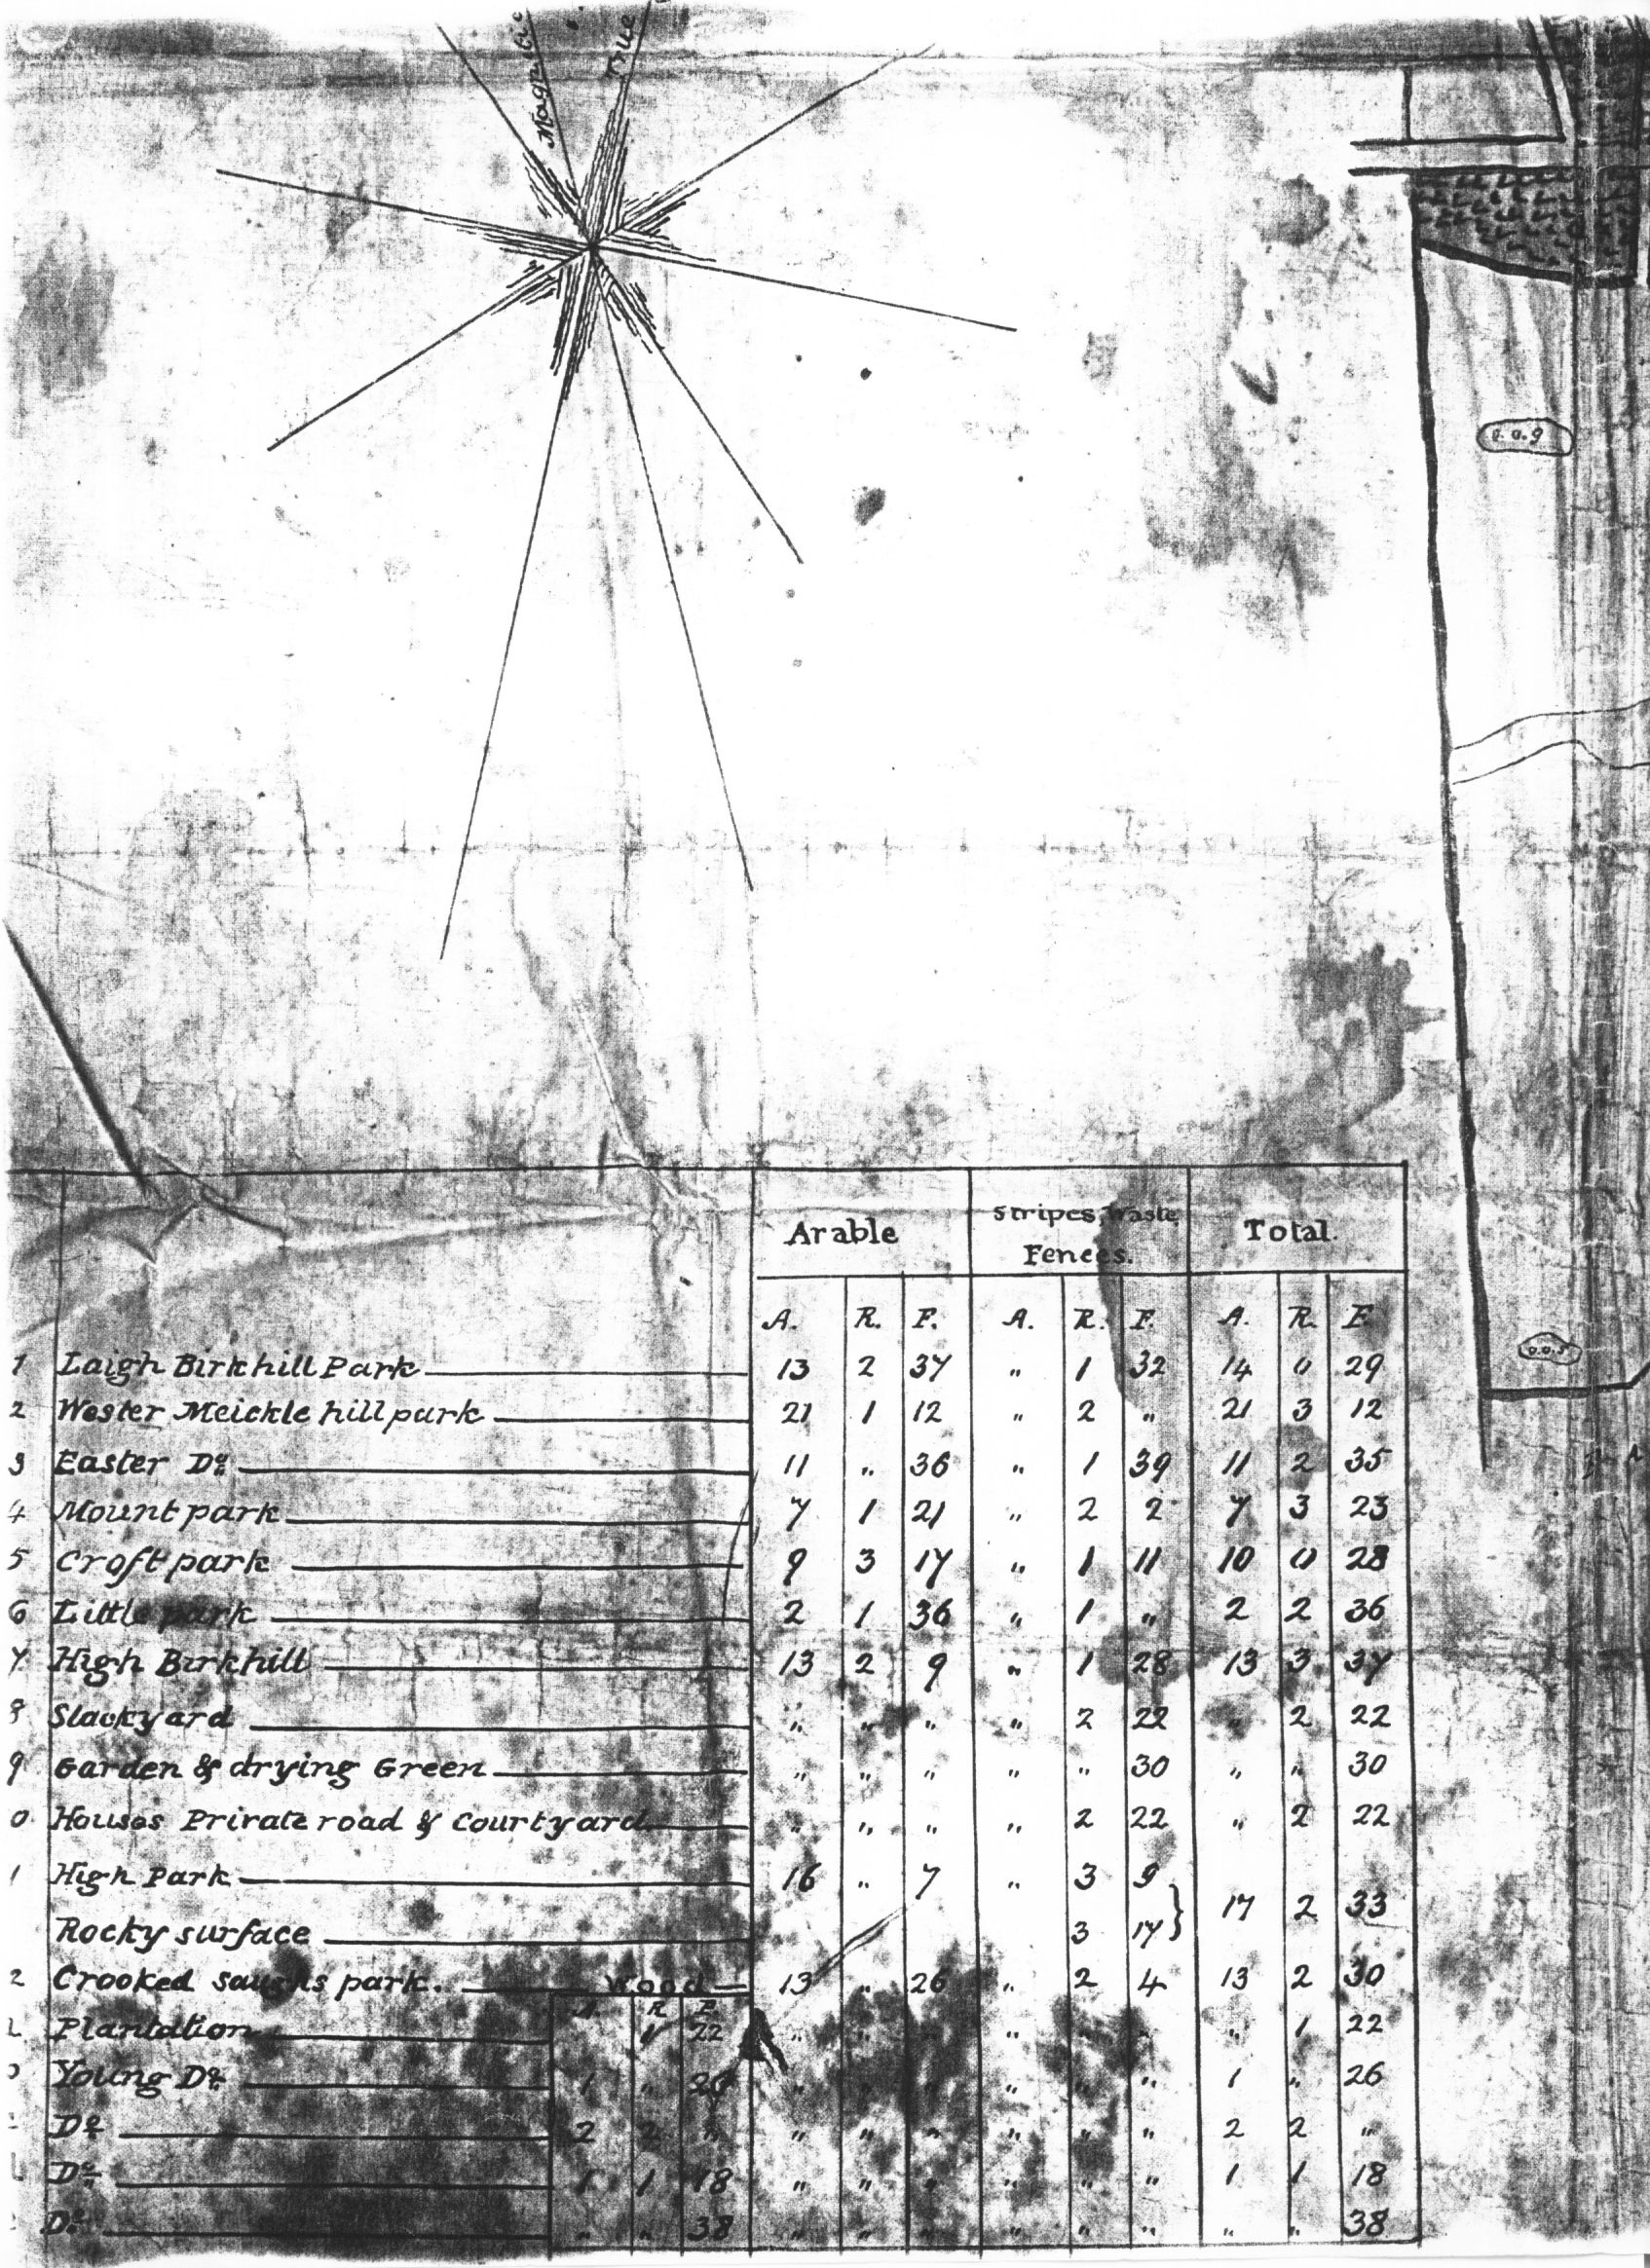 Magnetic
True
0.0.9
0.0.5
Arable Stripes, Waste, Fences. Total.
A. R. F. A. R. F. A. R. F.
1 Laigh Birkhill Park 13 2 37 " 1 32 14 0 29
2 Wester Meickle hill park 21 1 12 " 2 " 21 3 12
3 Easter Do. 11 " 36 " 1 39 11 2 35
4 Mount park 7 1 21 " 2 2 7 3 23
5 Croft park 9 3 17 " 1 11 10 0 28
6 Little park 2 1 36 " 1 " 2 2 36
7 High Birkhill 13 2 9 " 1 28 13 3 37
8 Stackyard " " " " 2 22 " 2 22
9 Garden & drying Green " " " " " 30 " " 30
0 Houses Private road & Courtyard " " " " 2 22 " 2 22
1 High Park 16 " 7 " 3 9
17 2 33
Rocky surface 3 17
2 Crooked saughs park. Wood 13 " 26 " 2 4 13 2 30
A. R F
Plantation 1 22 " " " " " " " 1 22
Young Do. 1 " 26 " " " " " " 1 " 26
Do 2 2 " " " " " " " 2 2 "
Do. 1 1 18 " " " " " " 1 1 18
Do. " " 38 " " " " " " " " 38